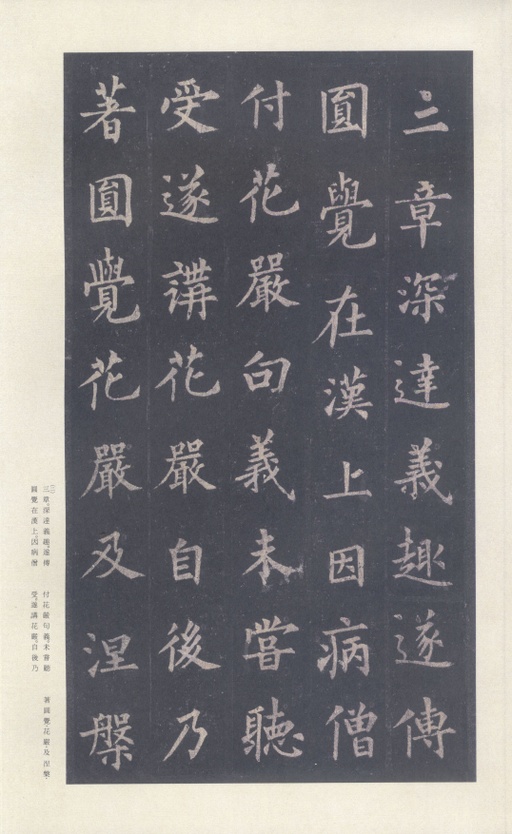 三章深達義趣遂傳
圓覺在漢上因病僧
付花嚴句義未甞聽
受遂講花嚴自後乃
著圓覺花嚴及涅槃
三章。深達義趣。遂傳
圓覺在漢上。因病僧
付花嚴句義。未甞聽
受。遂講花嚴。自後乃
著圓覺。花嚴。及涅槃。